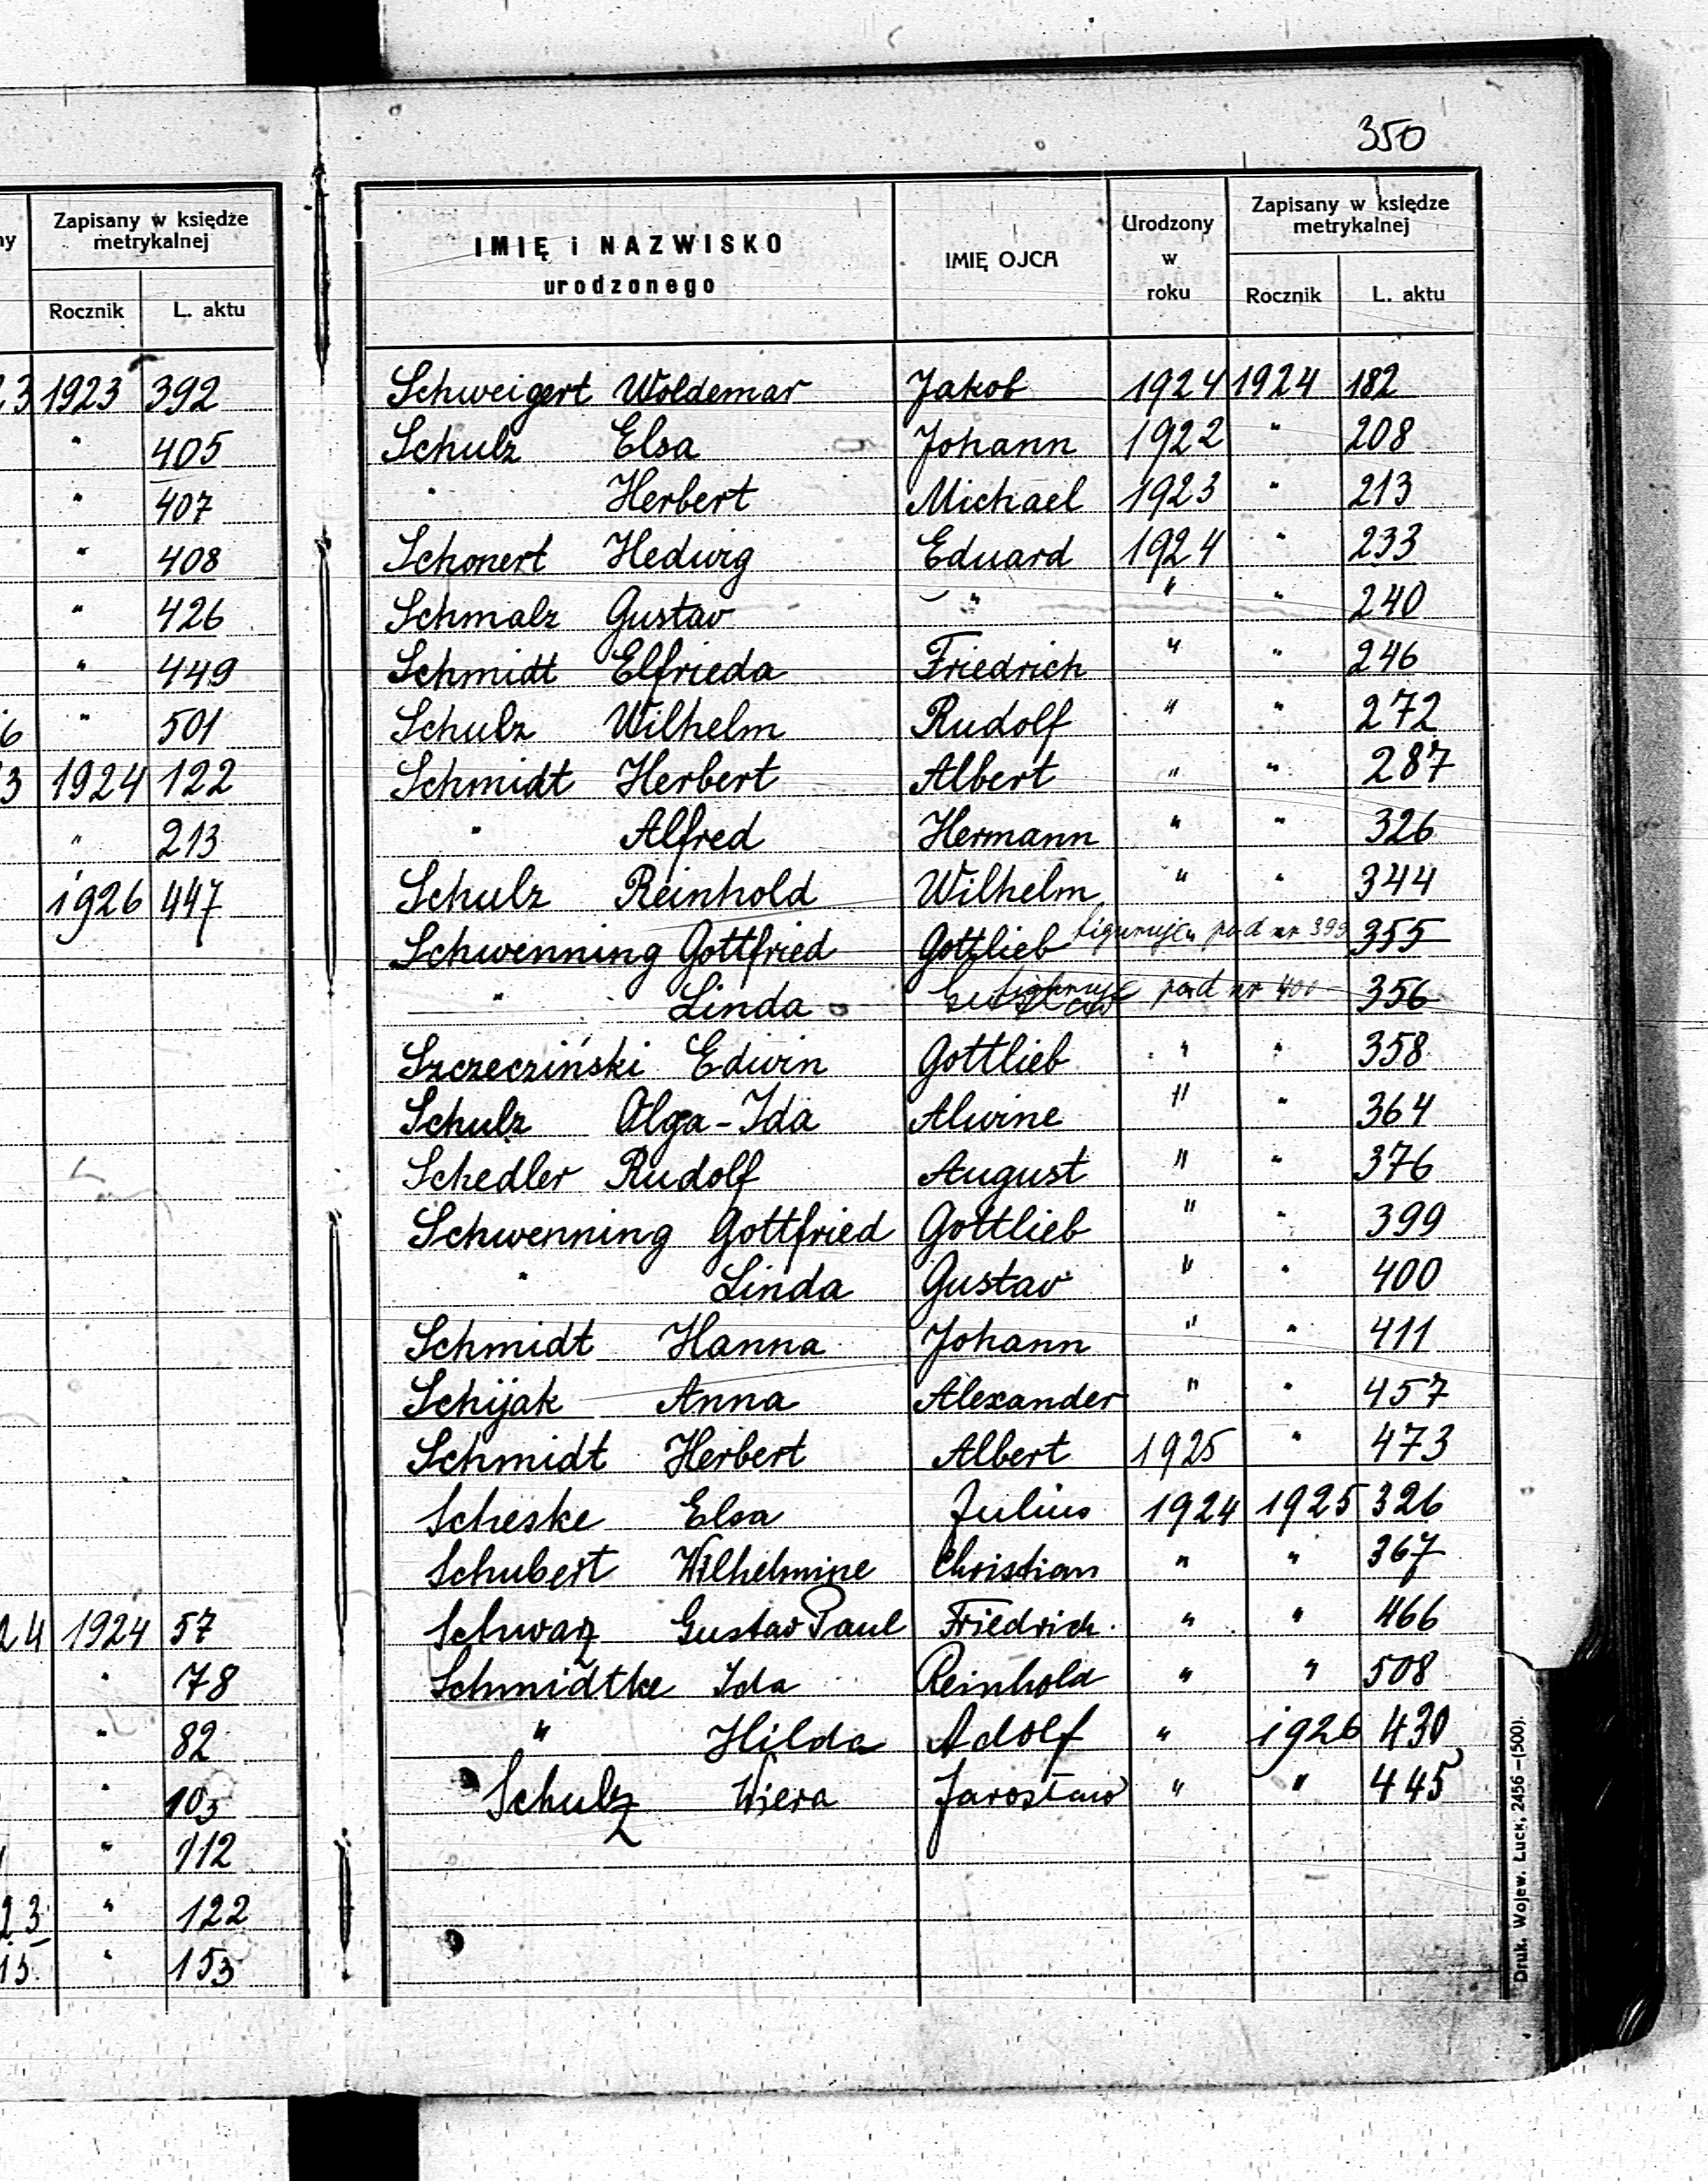 350
ny
Zapisany w księdze
metrykalnej
Rocznik L. aktu
23 1923 392
" 405
" 407
" 408
" 426
" 449
6 " 501
3 1924 122
" 213
1926 447
24 1924 57
" 78
" 82
" 103
" 112
23 " 122
13 " 153
IMIĘ i NAZWISKO
urodzonego
IMIĘ OJCA
Urodzony
w
roku
Zapisany w księdze
metrykalnej
Rocznik L. aktu
Schweigert Woldemar Jakob 1924 1924 182
Schulz Elsa Johann 1922 " 208
" Herbert Michael 1923 " 213
Schonert Hedwig Eduard 1924 " 233
Schmalz Gustav " " " 240
Schmidt Elfrieda Friedrich " " 246
Schulz Wilhelm Rudolf " " 272
Schmidt Herbert Albert " " 287
" Alfred Hermann " " 326
Schulz Reinhold Wilhelm " " 344
Schwenning Gottfried Gottlieb figuruje pod nr 399 355
" Linda figuruje pod nr 400 356
Szczecziński Edwin Gottlieb " " 358
Schulz Olga-Ida Alwine " " 364
Schedler Rudolf August " " 376
Schwenning Gottfried Gottlieb " " 399
" Linda Gustav " " 400
Schmidt Hanna Johann " " 411
Schijak Anna Alexander " " 457
Schmidt Herbert Albert 1925 " 473
Scheske Elsa Julius 1924 1925 326
Schubert Wilhelmine Christian " " 367
Schwarz Gustav Paul Friedrich " " 466
Schmidtke Ida Reinhold " " 508
" Hilda Adolf " 1926 430
Schulz Wiera Jarosław " " 445
Druk. Wojew. Łuck, 2456 –(500).